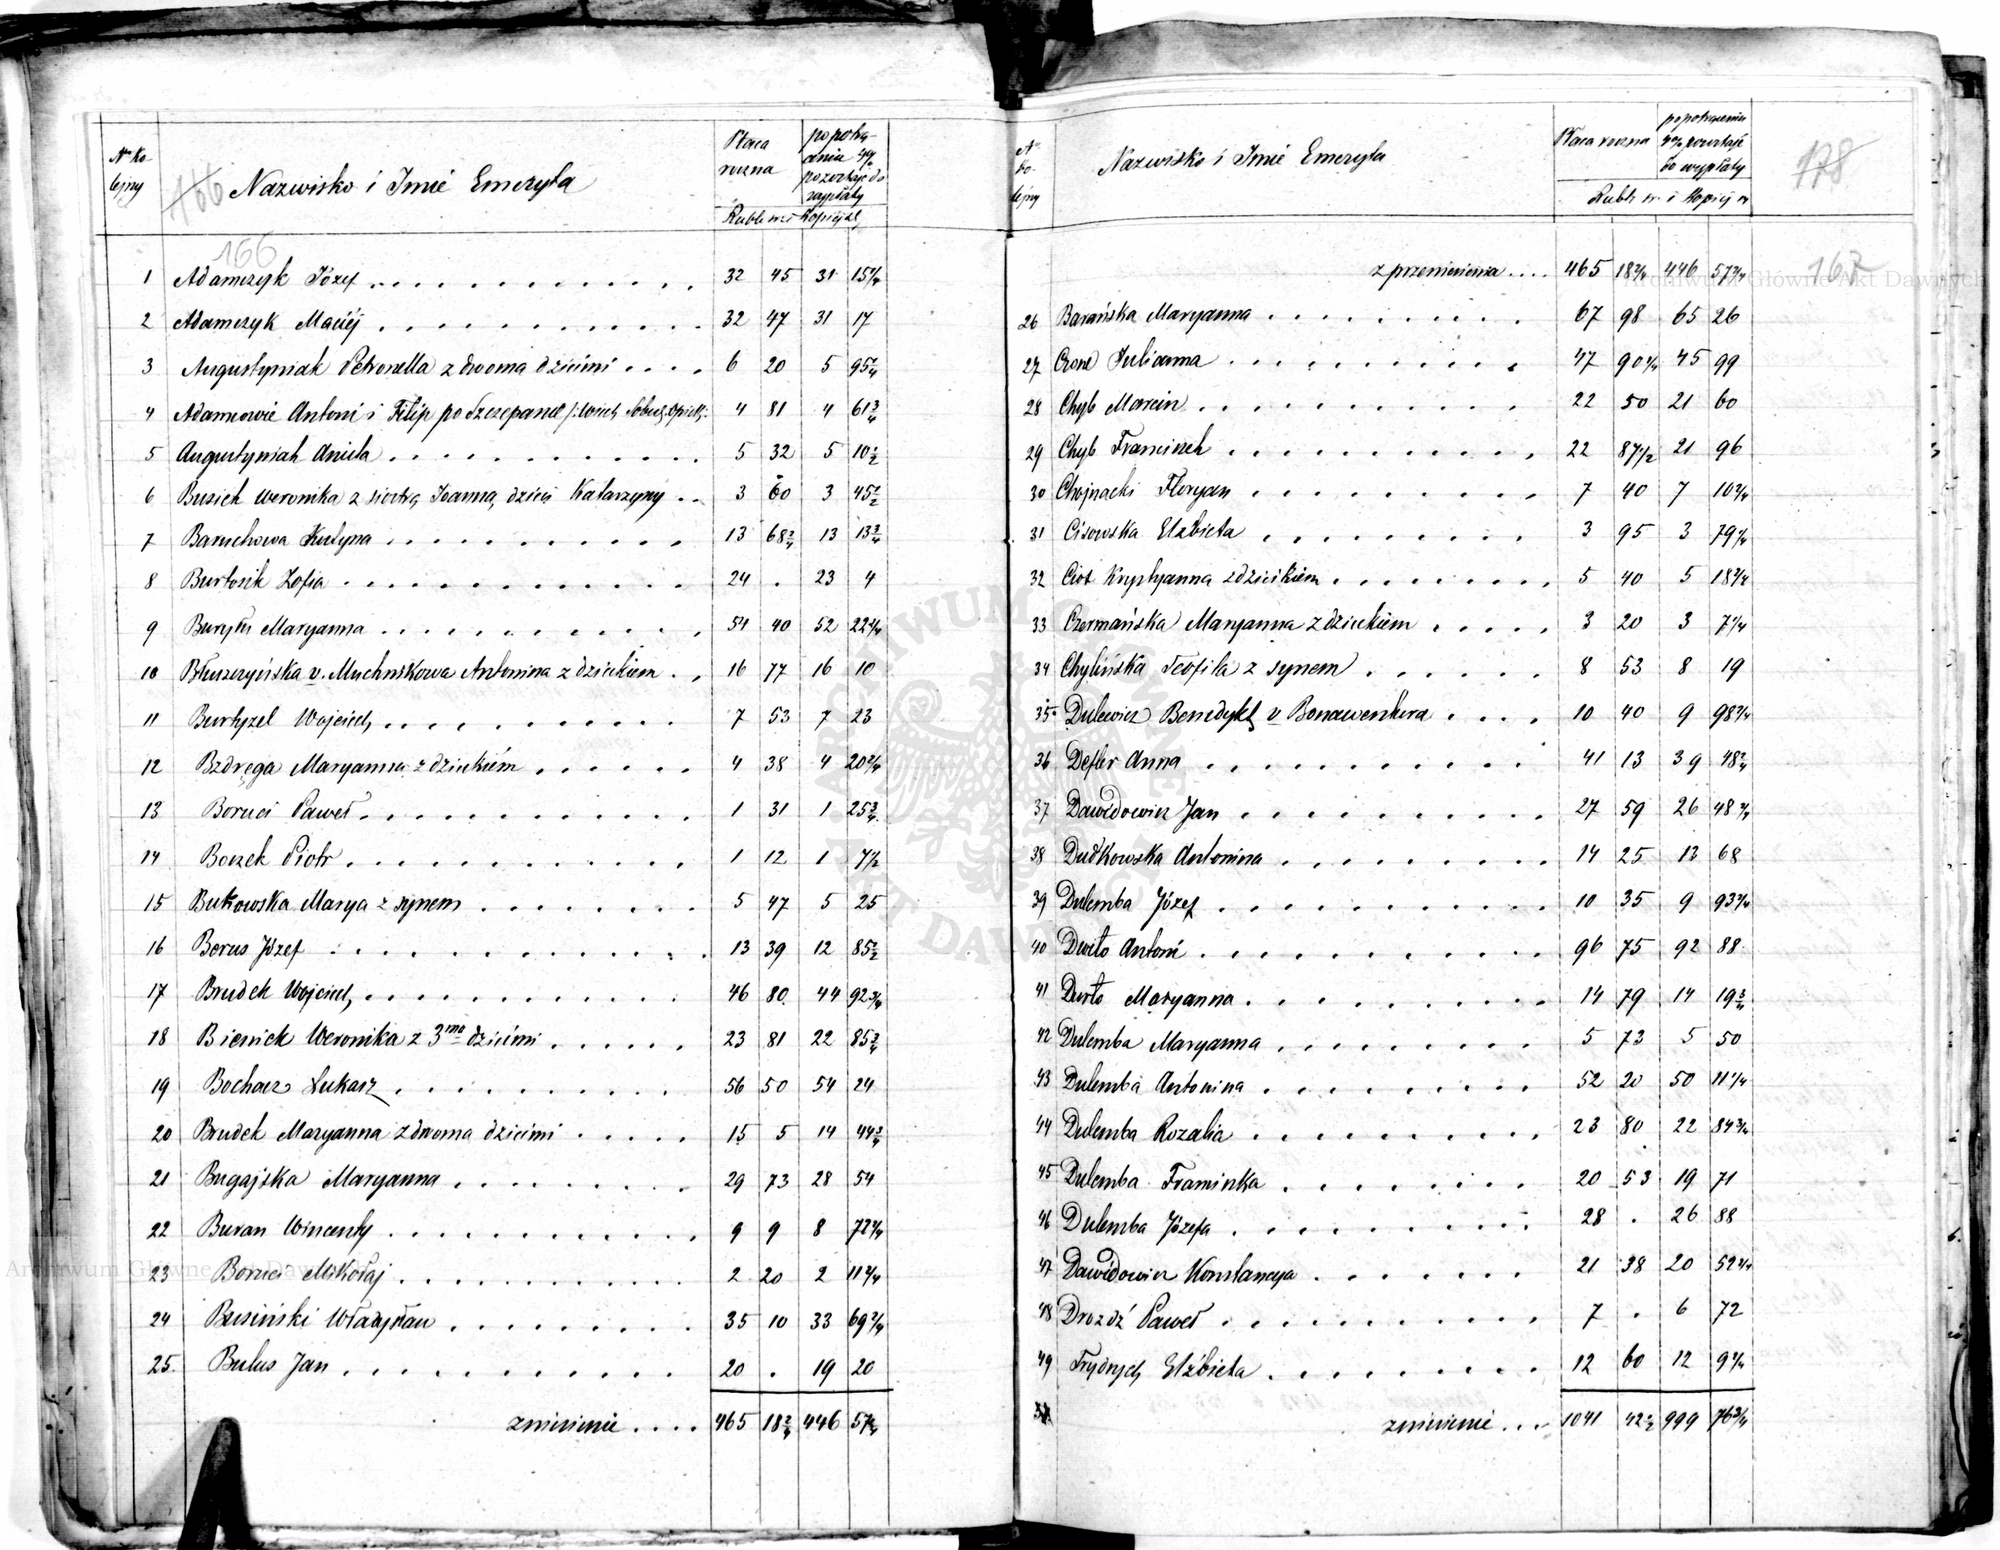 Nr Ko-
lejny
166
Nazwisko i Imie Emeryta
Płaca
roczna
po potrą-
caniu 4%
pozostaje do
wypłaty
Rubli sr. i Kopiejek
166
1 Adamczyk Józef 32 45 31 15 2/4
2 Adamczyk Maciéj 32 47 31 17
3 Augustyniak Petronella z dwoma dziećmi 6 20 5 95 2/4
4 Adamowie Antoni i Filip po Szczepanie 4 81 4 61 3/4
5 Augustyniak Aniela 5 32 5 10 1/2
6 Busiek Weronika z siostrą Joanną, dzieci Katarzyny 3 60 3 45 1/2
7 Baruchowa Krutyna 13 68 2/4 13 13 3/4
8 Burtosik Zofia 24 . 23 4
9 Maryanna 54 40 52 22 2/4
10 Błuszczyńska v. Muchnikowa Antonina z dzieckiem 16 77 16 10
11 Burtyzel Wojciech 7 53 7 23
12 Bzdręga Maryanna z dzieckiém 4 38 4 20 2/4
13 Boruci Paweł 1 31 1 25 3/4
14 Boczek Piotr 1 12 1 7 1/2
15 Bukowska Marya z synem 5 47 5 25
16 Borus Józef 13 39 12 85 1/2
17 Brudek Wojciech 46 80 44 92 3/4
18 Bieniek Weronika z 3ma dziećmi 23 81 22 85 3/4
19 Bochacz Łukasz 56 50 54 24
20 Brudek Maryanna z dwoma dziećmi 15 5 14 44 3/4
21 Bugajska Maryanna 29 73 28 54
22 Buran Wincenty 9 9 8 72 2/4
23 Boruci Mikołaj 2 20 2 11 2/4
24 Brusiński Władysław 35 10 33 69 2/4
25 Bulus Jan 20 . 19 20
zniesienie 465 18 2/4 446 57 2/4
Nr
ko-
lejny
Nazwisko i Imié Emeryta
Płaca roczna
po potrąceniu
4% pozostaje
do wypłaty
Rubli sr. i Kopiej sr
178
167
z przeniesienia 465 18 2/4 446 57 2/4
26 Barańska Maryanna 67 98 65 26
27 Crone Julianna 47 90 1/4 45 99
28 Chyb Marcin 22 50 21 60
29 Chyb Franciszek 22 87 1/2 21 96
30 Chojnacki Floryan 7 40 7 10 2/4
31 Cisowska Elżbieta 3 95 3 79 1/4
32 Ciot Krystyanna z dzieckiem 5 40 5 18 2/4
33 Czermańska Maryanna z dzieckiem 3 20 3 7 1/4
34 Chylińska Teofila z synem 8 53 8 19
35 Dulewicz Benedykt v Bonawentura 10 40 9 98 2/4
36 Defler Anna 41 13 39 48 2/4
37 Dawidowicz Jan 27 59 26 48 3/4
38 Dudkowska Antonina 14 25 13 68
39 Dulemba Józef 10 35 9 93 2/4
40 Antoni 96 75 92 88
41 Maryanna 14 79 14 19 3/4
42 Dulemba Maryanna 5 73 5 50
43 Dulemba Antonina 52 20 50 11 1/4
44 Dulemba Rozalia 23 80 22 84 3/4
45 Dulemba Franciszka 20 53 19 71
46 Dulemba Józefa 28 . 26 88
47 Dawidowicz Konstancya 21 38 20 52 2/4
48 Drozdź Paweł 7 . 6 72
49 Frydrych Elżbieta 12 60 12 9 2/4
zniesienie 1041 42 2/4 999 76 3/4
Archiwum Główne Akt Dawnych
Archiwum Główne Akt Dawnych
ARCHIWUM GŁÓWNE
AKT DAWNYCH